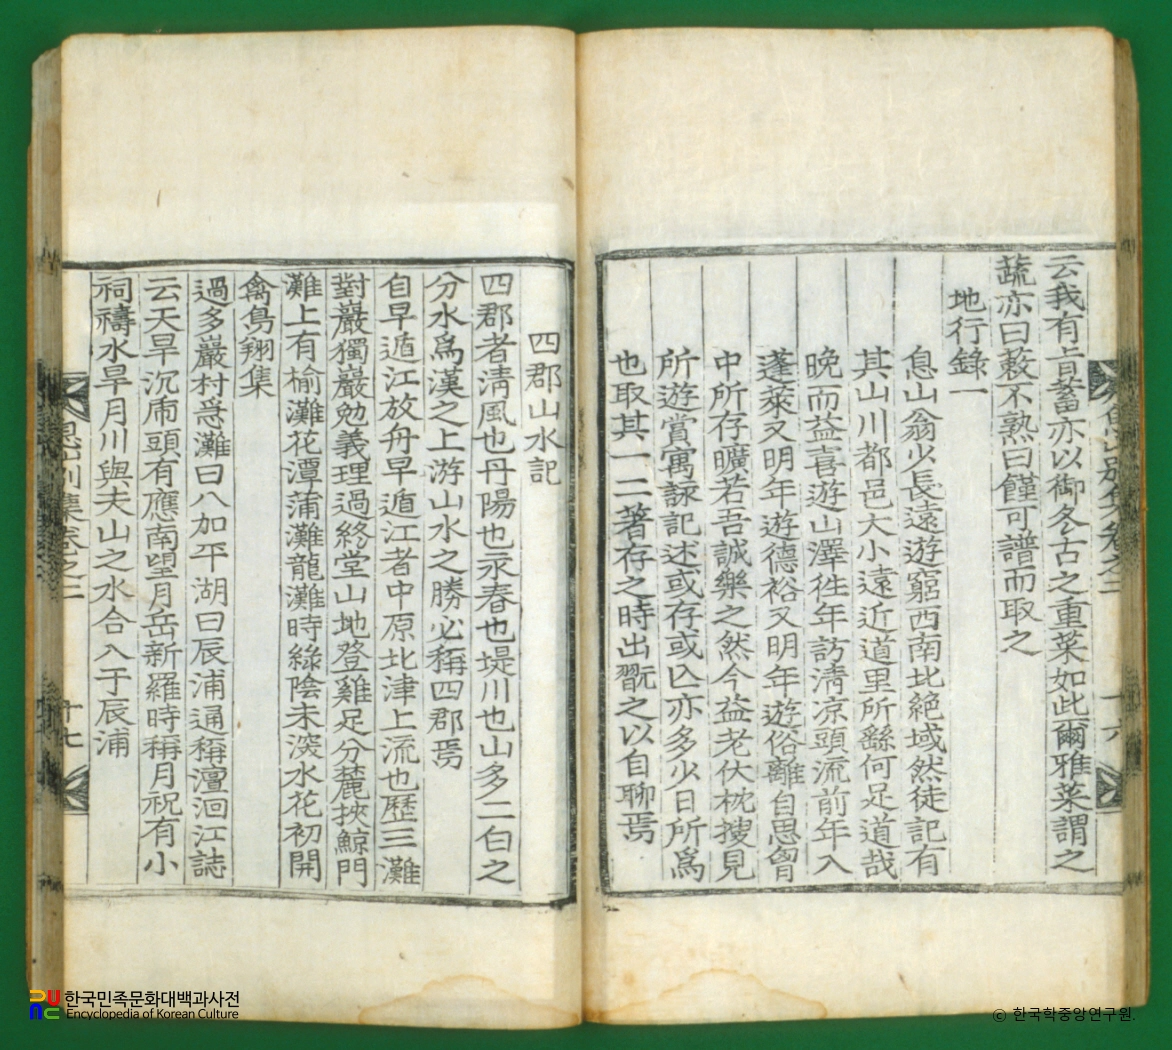 云我有旨蓄亦以御冬古之重菜如此爾雅菜謂之
蔬亦曰蔌不熟曰饉可譜而取之
地行錄一
息山翁少長遠遊窮西南北絶域然徒記有
其山川都邑大小遠近道里所繇何足道哉
晩而益喜遊山澤徃年訪淸凉頭流前年入
蓬萊又明年遊德裕又明年遊俗離自思曾
中所存曠若吾誠樂之然今益老伏枕搜見
所遊賞寓詠記述或存或亡亦多少日所爲
也取其一二著存之時出翫之以自聊焉
四郡山水記
四郡者淸風也丹陽也永春也堤川也山多二白之
分水爲漢之上游山水之勝必稱四郡焉
自早遁江放舟早遁江者中原北津上流也歷三灘
對巖獨巖勉義理過終堂山地登雞足分麓挾鯨門
灘上有楡灘花潭蒲灘龍灘時綠陰未深水花初開
禽鳥翔集
過多巖村爲灘曰八加平湖曰辰浦通稱澶洄江誌
云天旱沉虎頭有應南望月岳新羅時稱月祝有小
祠禱水旱月川與夫山之水合入于辰浦
息山別集卷之二
十七
十六
한국민족문화대백과사전
Encyclopedia of Korean Culture
© 한국학중앙연구원.